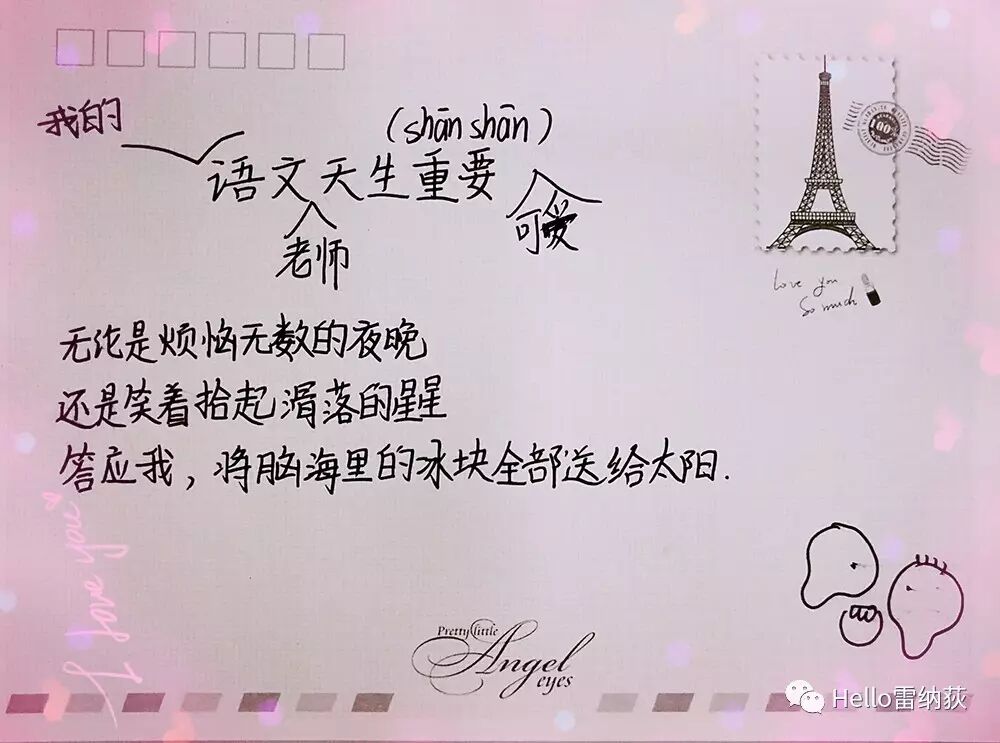 我的
(shān shān)
语文天生重要
老师
可爱
Love you
So much
无论是烦恼无数的夜晚
还是笑着拾起滑落的星星
答应我，将脑海里的冰块全部送给太阳.
I love you
Pretty little
Angel
eyes
Hello雷纳荻